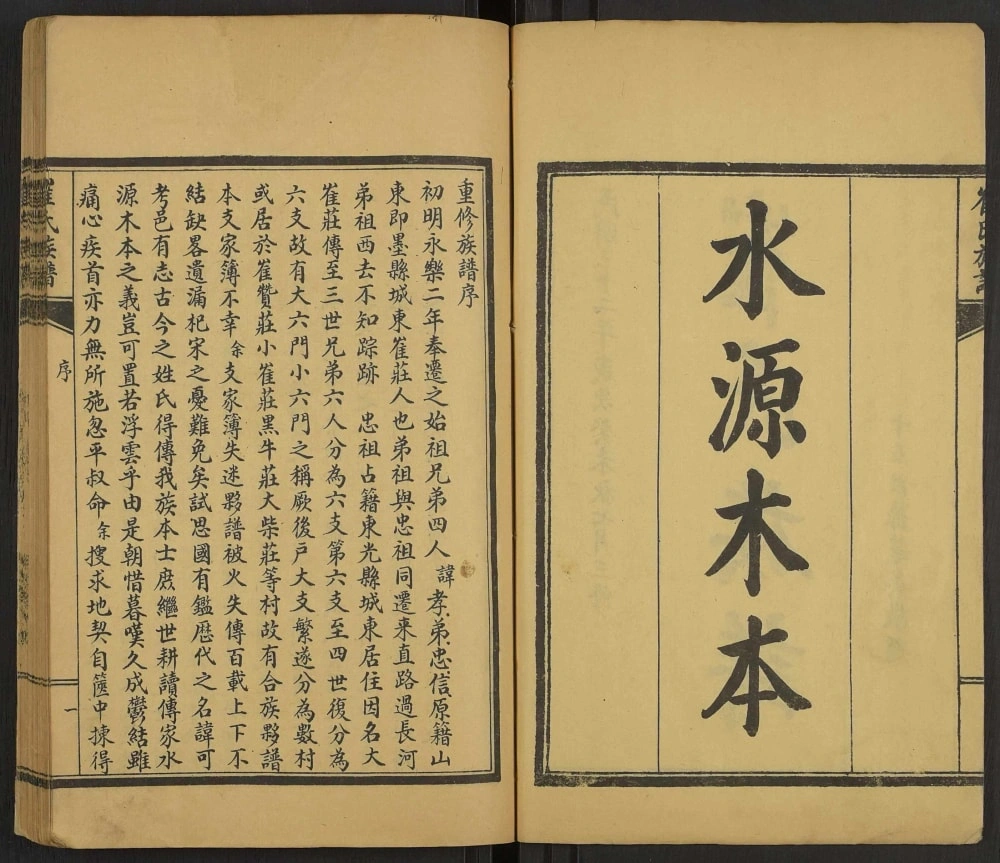 水源木本
重修族譜序
初明永樂二年奉遷之始祖兄弟四人諱孝弟忠信原籍山
東即墨縣城東崔莊人也弟祖與忠祖同遷來直路過長河
弟祖西去不知踪跡忠祖占籍東光縣城東居住因名大
崔莊傳至三世兄弟六人分為六支第六支至四世復分為
六支故有大六門小六門之稱厥後戶大支繁遂分為數村
或居於崔贊莊小崔莊黑牛莊大柴莊等村故有合族夥譜
本支家簿不幸余支家簿失迷夥譜被火失傳百載上下不
結缺畧遺漏杞宋之憂難免矣試思國有鑑歷代之名諱可
考邑有志古今之姓氏得傳我族本士庶繼世耕讀傳家水
源木本之義豈可置若浮雲乎由是朝惜暮嘆久成鬱結雖
痛心疾首亦力無所施忽平叔命余搜求地契自篋中揀得
崔氏族譜
序
一